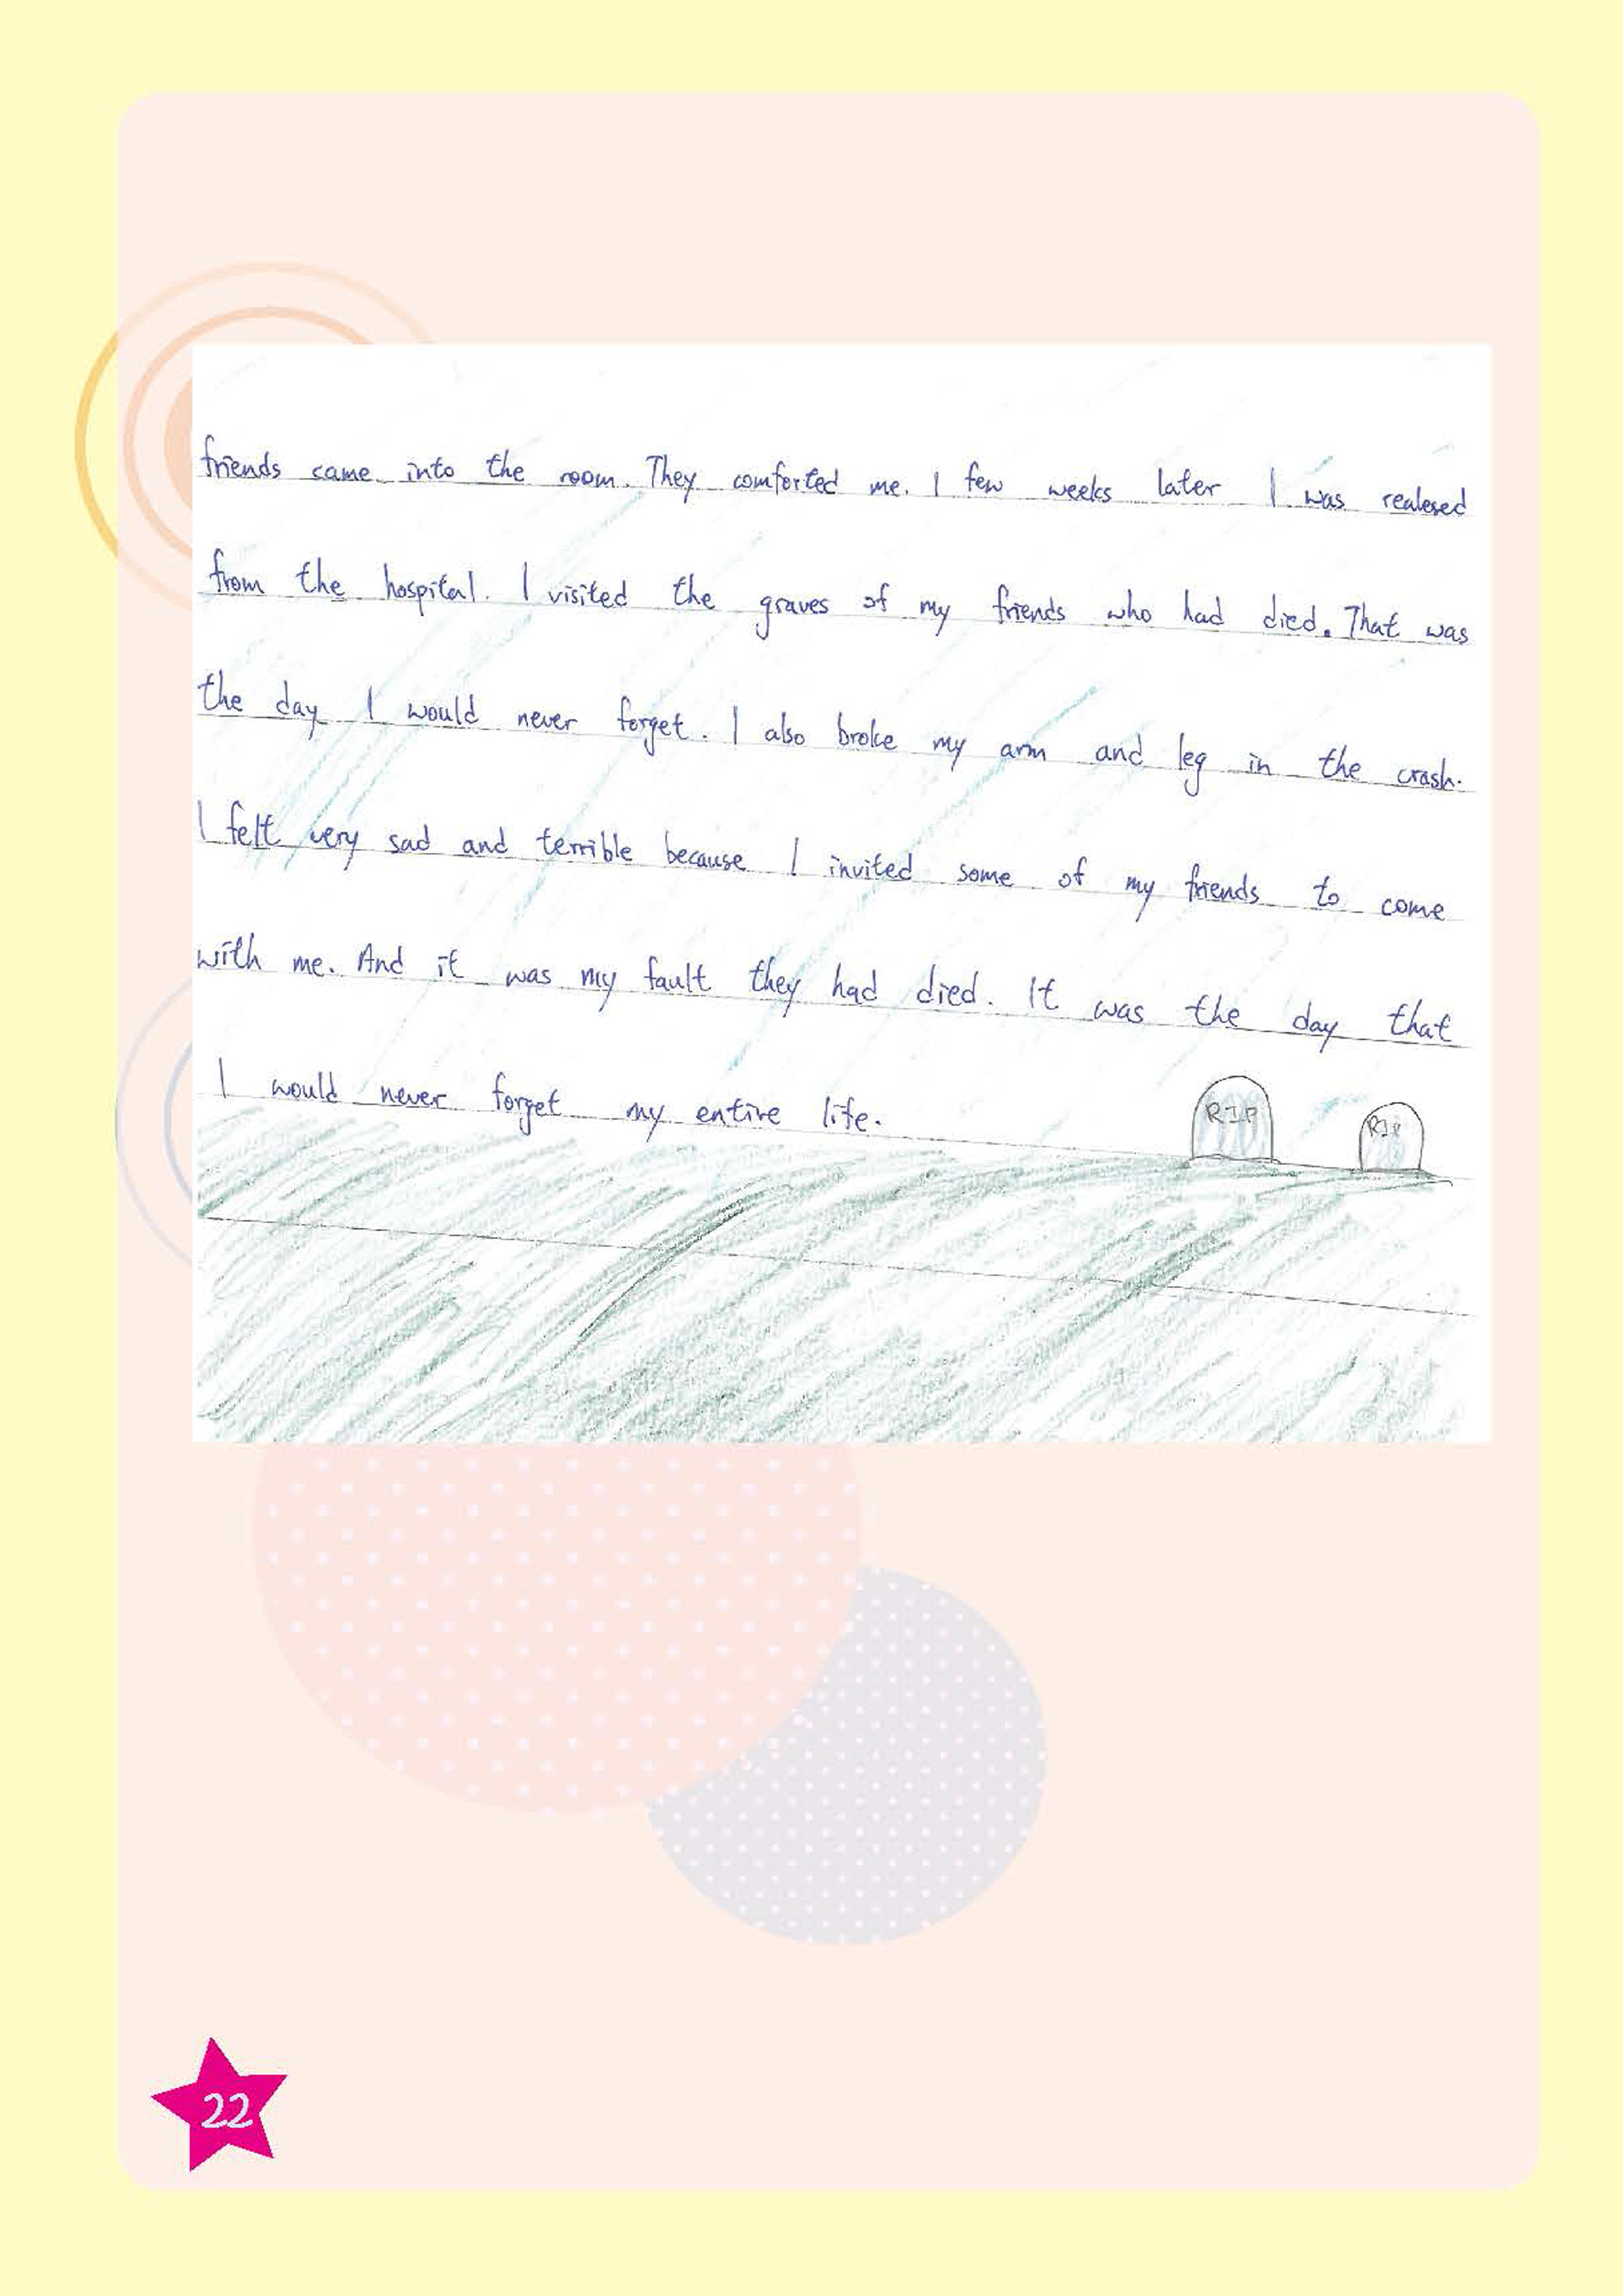 friends came into the room. They comforted me. I few weeks later I was realesed
from the hospital. I visited the graves of my friends who had died. That was
the day I would never forget. I also broke my arm and leg in the crash.
I felt very sad and terrible because I invited some of my friends to come
with me. And it was my fault they had died. It was the day that
I would never forget my entire life.
RIP RIP
22